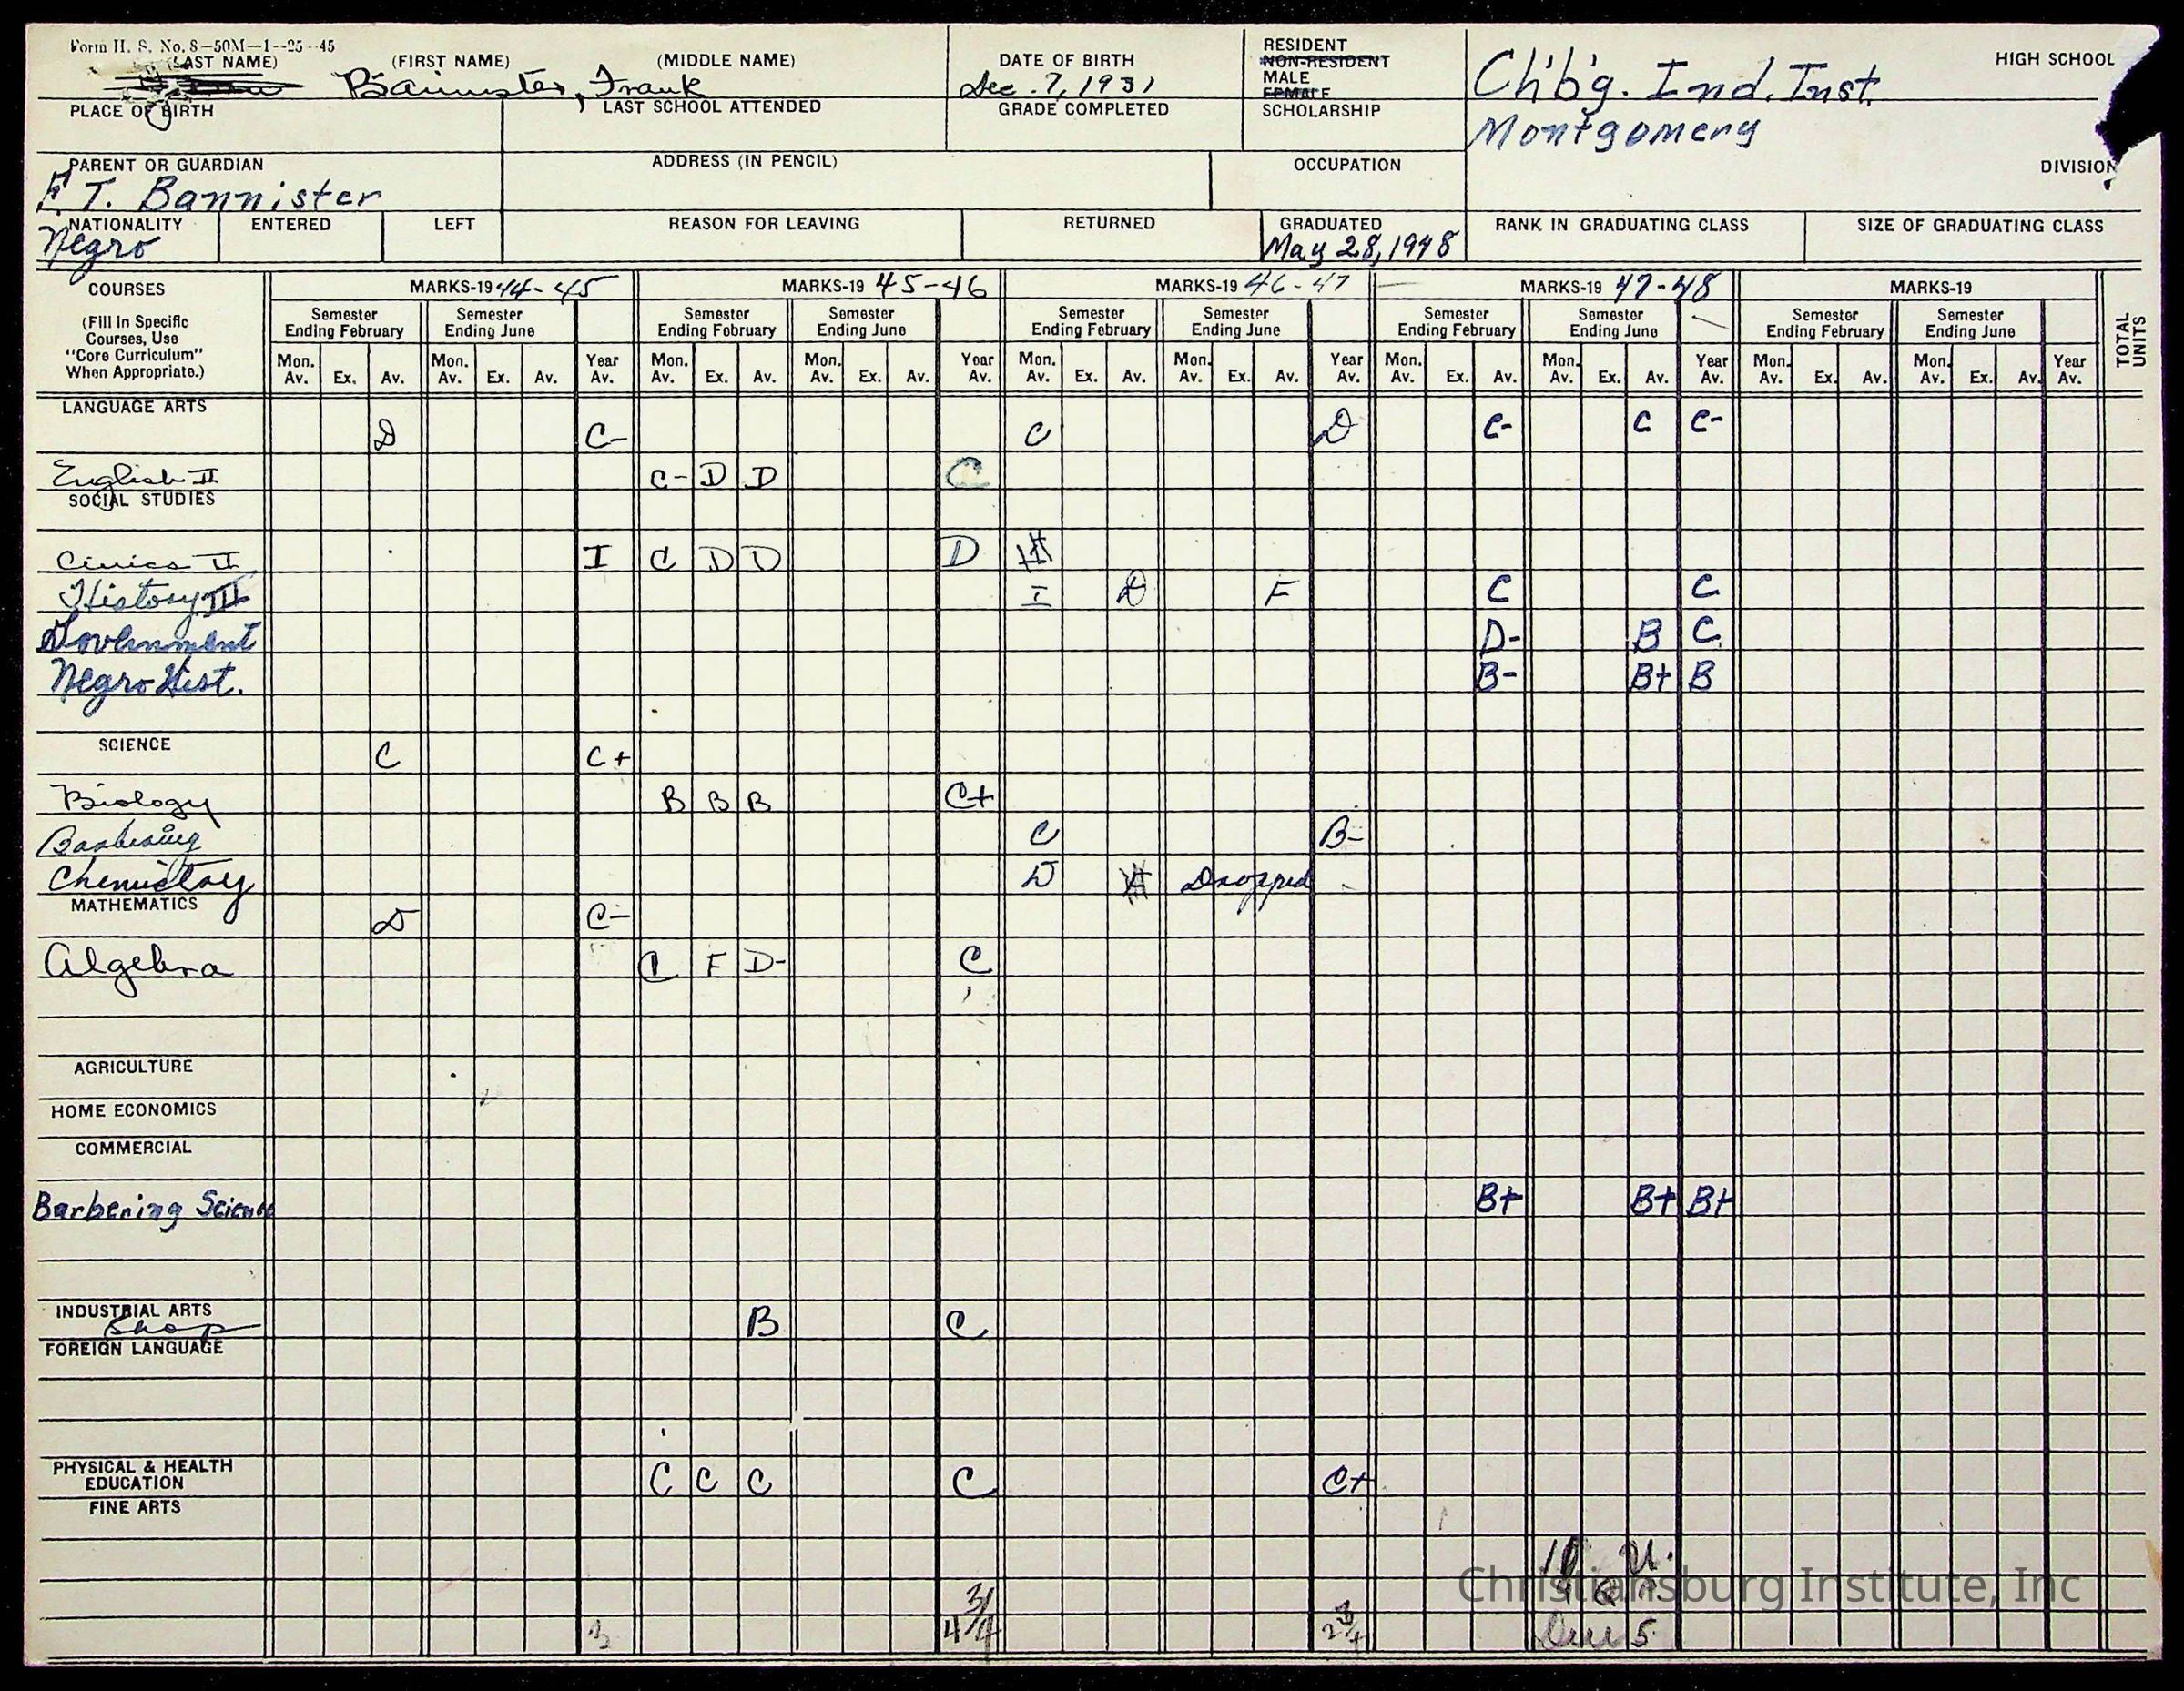 Form H. S. No. 8—50M—1--25--45
(LAST NAME) (FIRST NAME) (MIDDLE NAME) DATE OF BIRTH RESIDENT HIGH SCHOOL
NON-RESIDENT
Bannister, Frank Dec. 7, 1931 MALE Ch'b'g. Ind. Inst.
FEMALE
PLACE OF BIRTH LAST SCHOOL ATTENDED GRADE COMPLETED SCHOLARSHIP
Montgomery
PARENT OR GUARDIAN ADDRESS (IN PENCIL) OCCUPATION DIVISION
E T. Bannister
NATIONALITY ENTERED LEFT REASON FOR LEAVING RETURNED GRADUATED RANK IN GRADUATING CLASS SIZE OF GRADUATING CLASS
Negro May 28, 1948
COURSES MARKS-19 44-45 MARKS-19 45-46 MARKS-19 46-47 MARKS-19 47-48 MARKS-19 TOTAL UNITS
(Fill in Specific Semester Semester Semester Semester Semester Semester Semester Semester Semester Semester
Courses, Use Ending February Ending June Ending February Ending June Ending February Ending June Ending February Ending June Ending February Ending June
"Core Curriculum" Mon. Mon. Year Mon. Mon. Year Mon. Mon. Year Mon. Mon. Year Mon. Mon. Year
When Appropriate.) Av. Ex. Av. Av. Ex. Av. Av. Av. Ex. Av. Av. Ex. Av. Av. Av. Ex. Av. Av. Ex. Av. Av. Av. Ex. Av. Av. Ex. Av. Av. Av. Ex. Av. Av. Ex. Av. Av.
LANGUAGE ARTS
D C- C D C- C C-
English II C- D D C
SOCIAL STUDIES
Civics II I C D D D
History III I D F C C
Government D- B C
Negro Hist. B- B+ B
SCIENCE C C+
Biology B B B C+
Barbering C B-
Chemistry D Dropped
MATHEMATICS D C-
Algebra C F D- C
AGRICULTURE
HOME ECONOMICS
COMMERCIAL
Barbering Science B+ B+ B+
INDUSTRIAL ARTS
Shop B C
FOREIGN LANGUAGE
PHYSICAL & HEALTH
EDUCATION C C C C C+
FINE ARTS
Christiansburg Institute, Inc
4 3/4 2 3/4 5